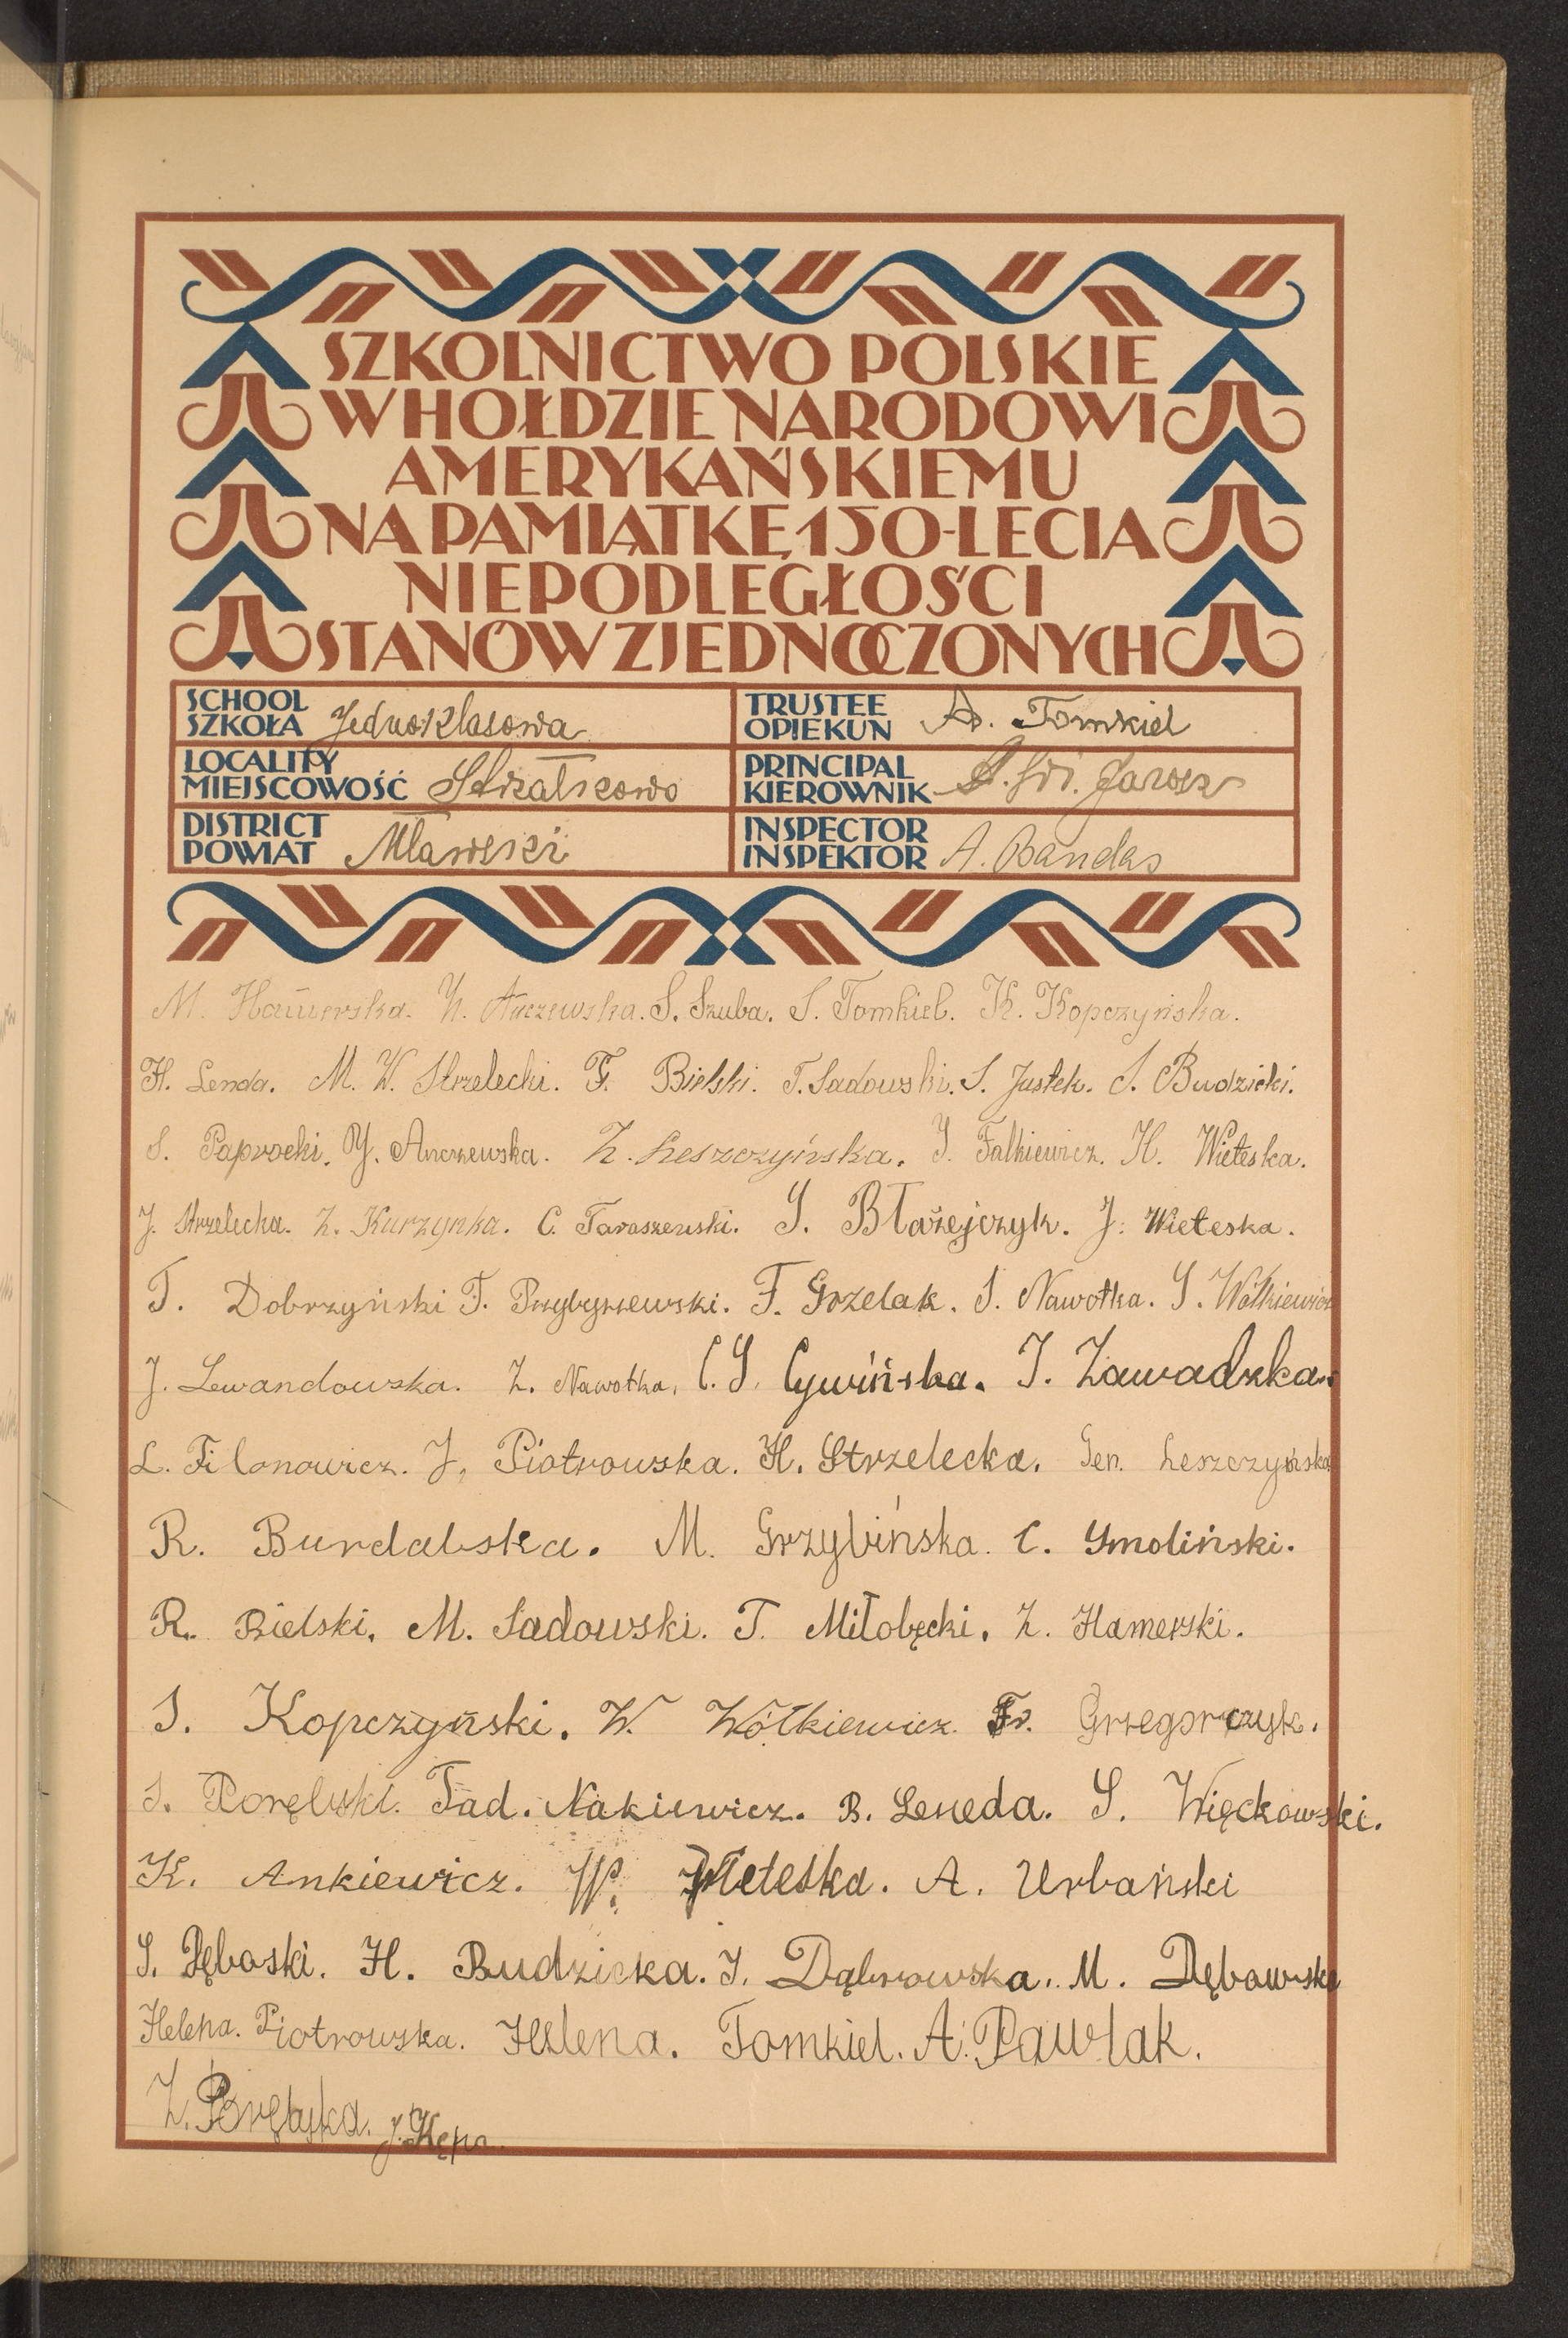 SZKOLNICTWO POLSKIE
W HOŁDZIE NARODOWI
AMERYKAŃSKIEMU
NA PAMIĄTKĘ 150-LECIA
NIEPODLEGŁOŚCI
STANÓW ZJEDNOCZONYCH
SCHOOL
SZKOŁA Jednoklasowa
TRUSTEE
OPIEKUN A. Tomkiel
LOCALITY
MIEJSCOWOŚĆ Strzałkowo
PRINCIPAL
KIEROWNIK
DISTRICT
POWIAT Mławski
INSPECTOR
INSPEKTOR A. Bandas
M. Hamerska. S. Szuba. S. Tomkiel. K. Kopczyńska.
H. Lenda. M. W. Strzelecki. F. Bielski. T. Sadowski. S. Justek. S. Budzicki.
S. Paprocki. Y. Anczewska. Z. Leszczyńska. J. Falkiewicz. H. Wieteska.
J. Strzelecka. Z. Kurzynka. C. Taraszewski. S. Błażejczyk. J. Wieteska.
T. Dobrzyński F. Przybyszewski. F. Grzelak. S. Nawotka. S. Wółkiewicz
J. Lewandowska. Z. Nawotka. C. S. Cywińska. J. Zawadzka.
L. Filonowicz. J. Piotrowska. H. Strzelecka. Gen. Leszczyńska
R. Burdalska. M. Grzybińska. C. Smoliński.
R. Bielski. M. Sadowski. T. Miłobęcki. Z. Hamerski.
S. Kopczyński. W. Wółkiewicz. Fr. Grzegorczyk.
S. Porębski. Tad. Nakiewicz. B. Leneda. S. Więckowski.
K. Ankiewicz. W. Wieteska. A. Urbański
S. Dęboski. H. Budzicka. J. Dąbrowska. M. Dębowski
Helena. Piotrowska. Helena. Tomkiel. A. Pawlak.
Z. J. Kępa.